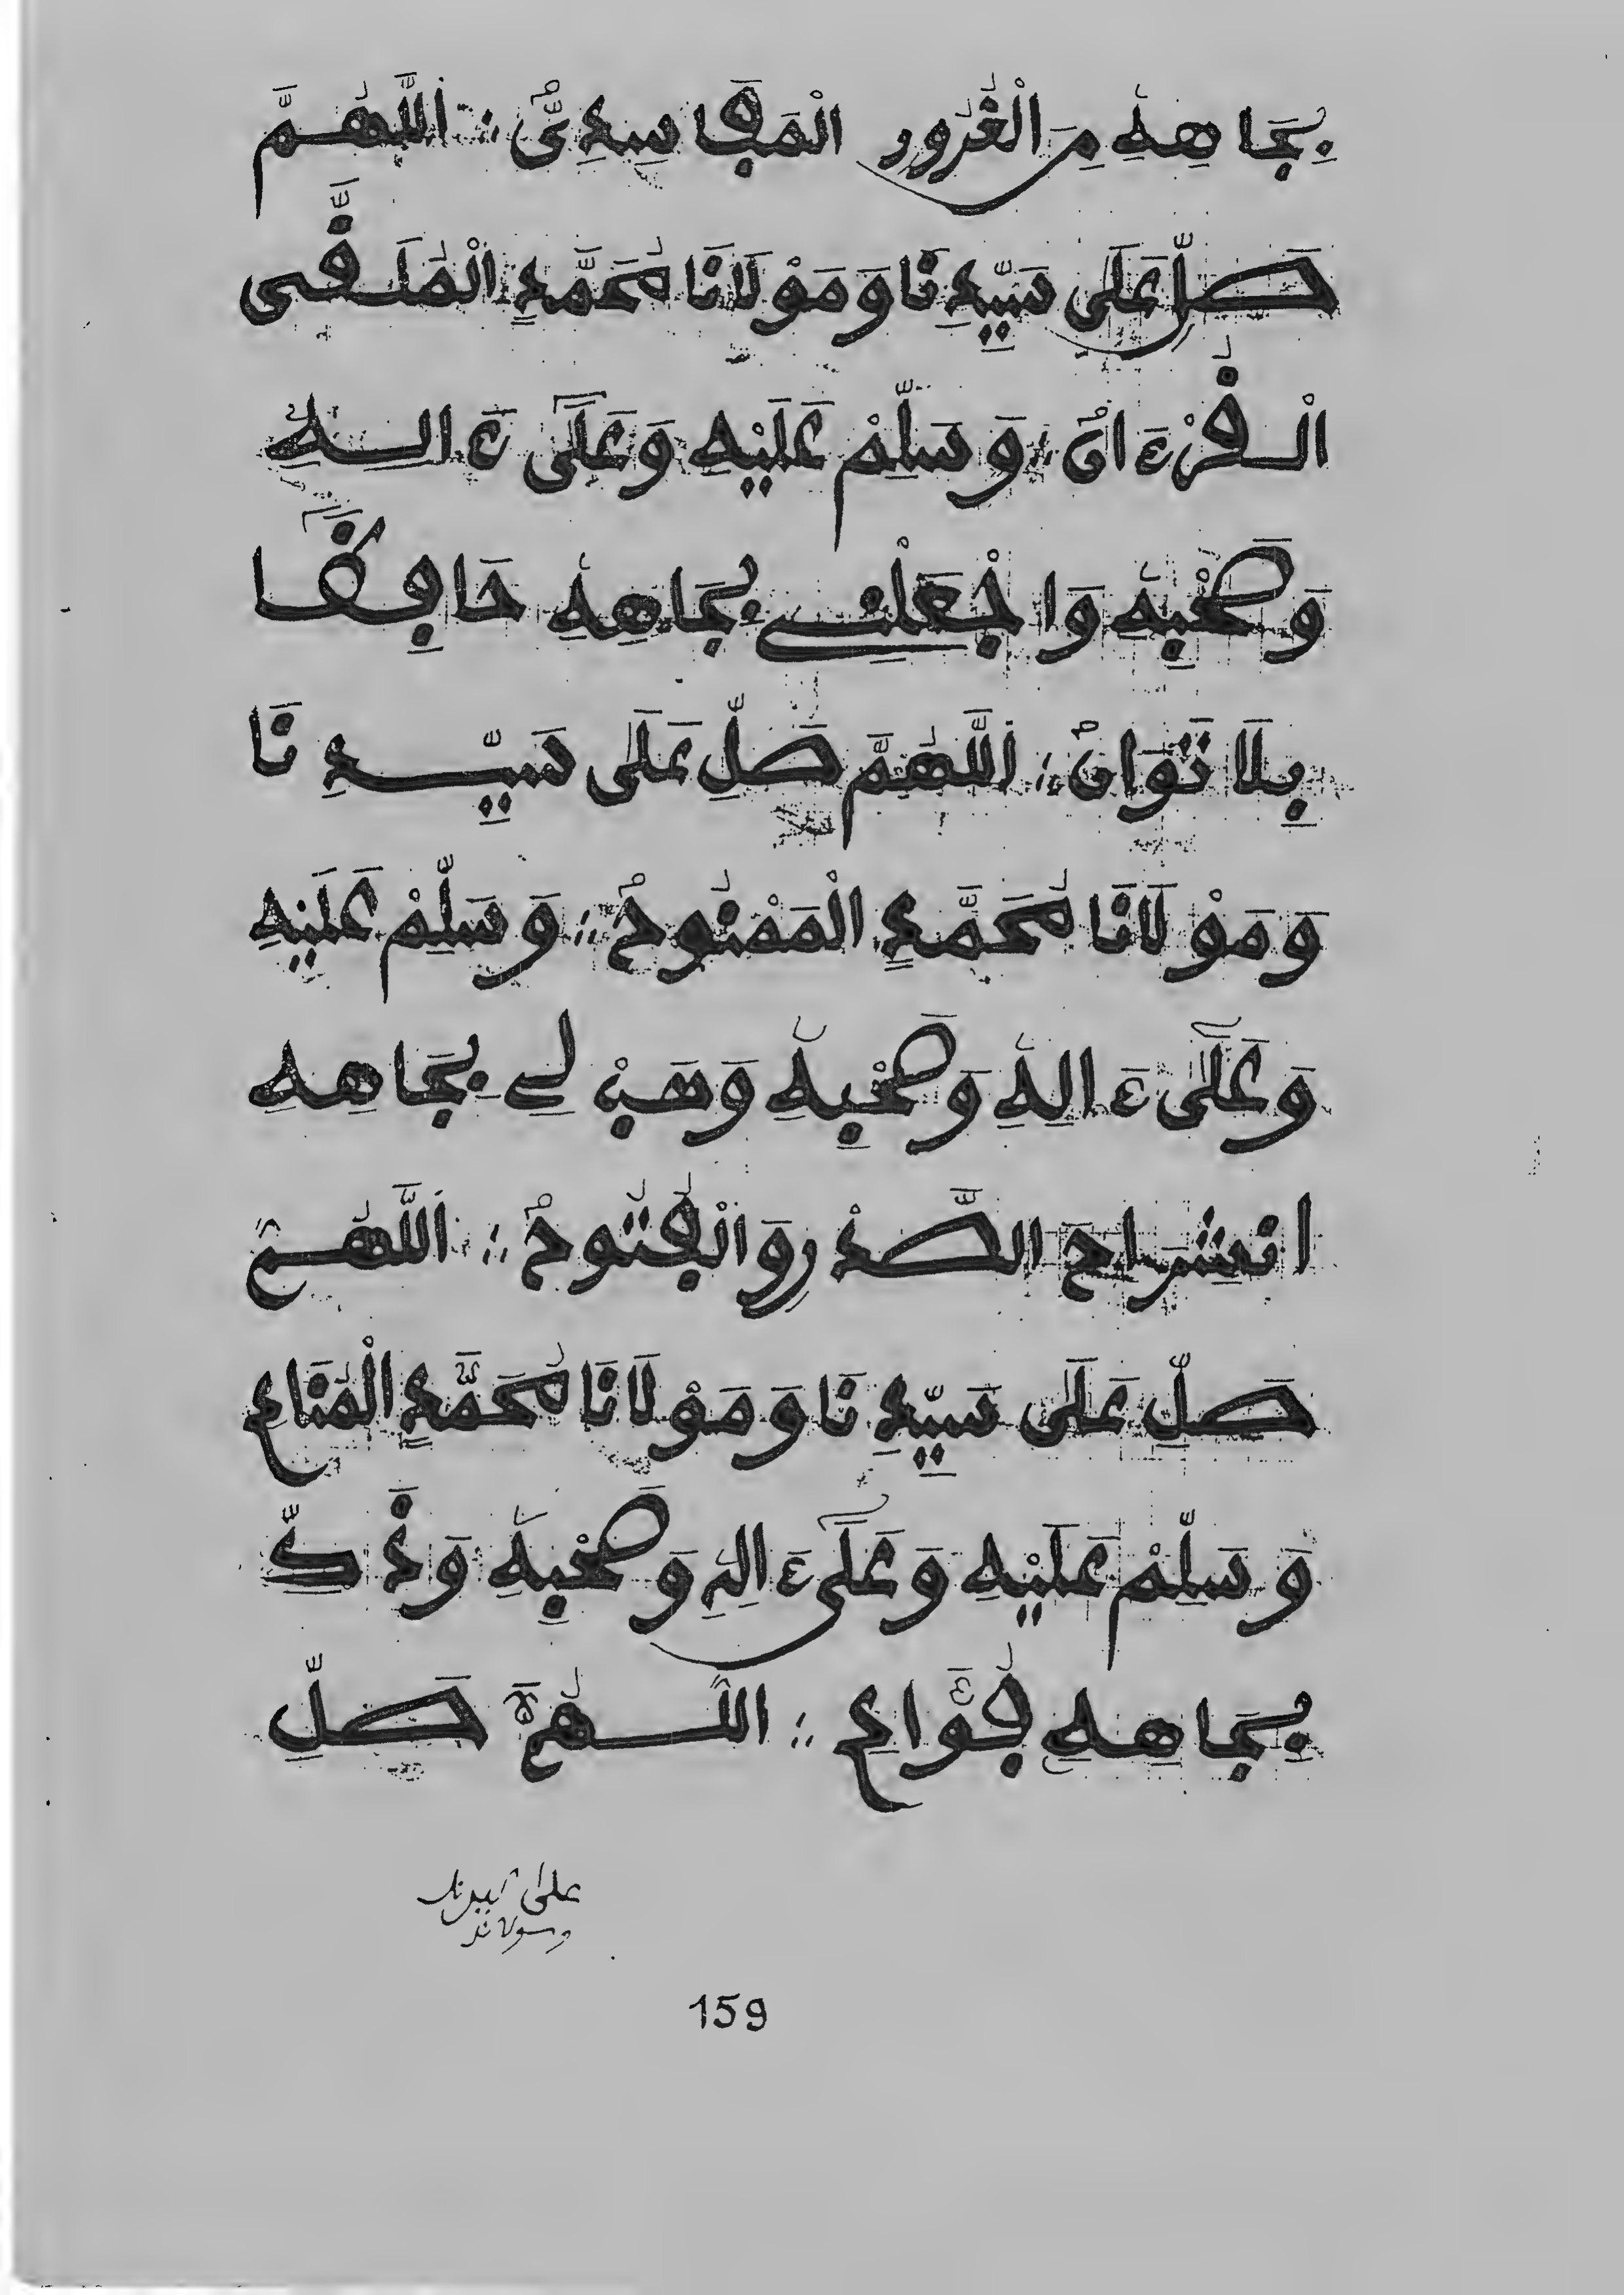 بِجَاهِهِ مِنَ الْغُرُورِ الْمَفَاسِدِيِّ ؛ اَللَّهُمَّ
صَلِّ عَلَى سَيِّدِنَا وَمَوْلَانَا مُحَمَّدٍ الْمُلَقَّى
الْقُرْءَانْ ؛ وَسَلِّمْ عَلَيْهِ وَعَلَى ءَالِهِ
وَصَحْبِهِ وَاجْعَلْنِي بِجَاهِهِ حَافِظًا
بِلَا تَوَانْ ؛ اَللَّهُمَّ صَلِّ عَلَى سَيِّدِنَا
وَمَوْلَانَا مُحَمَّدٍ الْمَمْنُوحْ ؛ وَسَلِّمْ عَلَيْهِ
وَعَلَى ءَالِهِ وَصَحْبِهِ وَهَبْ لِي بِجَاهِهِ
انْشِرَاحَ الصَّدْرِ وَالْفُتُوحْ ؛ اَللَّهُمَّ
صَلِّ عَلَى سَيِّدِنَا وَمَوْلَانَا مُحَمَّدٍ الْمُنَاجِ
وَسَلِّمْ عَلَيْهِ وَعَلَى ءَالِهِ وَصَحْبِهِ وَذَكِّ
بِجَاهِهِ فُؤَادِي ؛ اَللَّهُمَّ صَلِّ
على
159